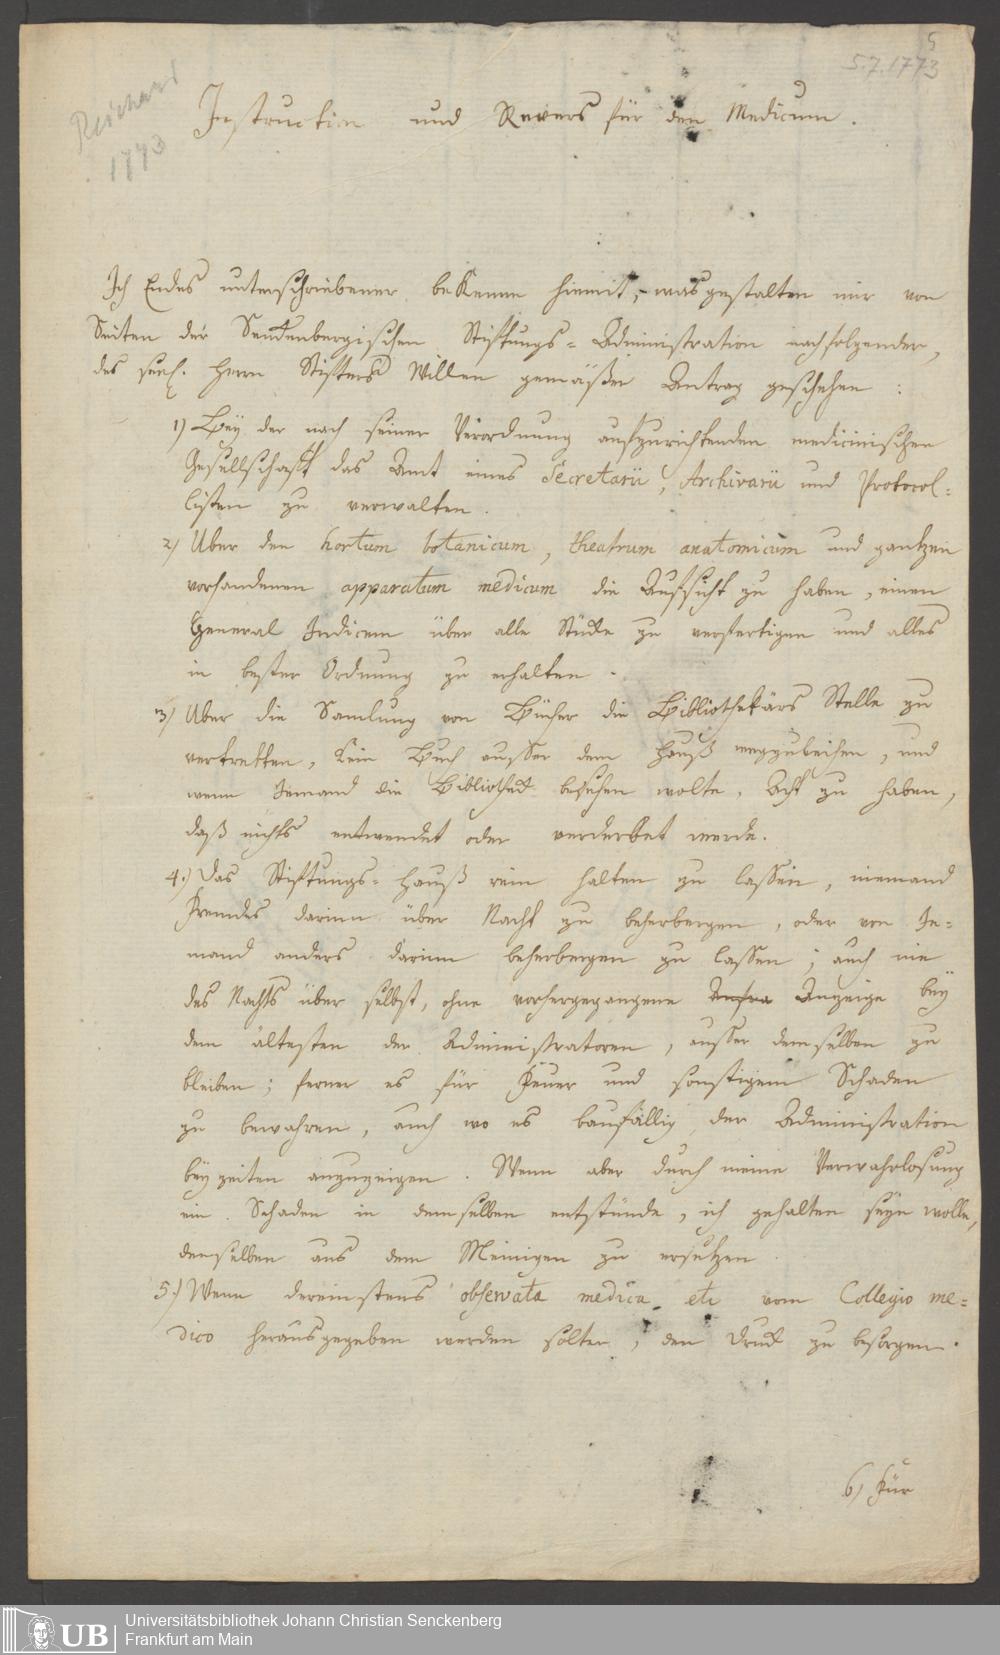 5
5.7.1773
Reichard
1773
Instruction und Revers für den Medicum.
Ich Endes unterschriebener bekenne hiemit, was gestalten mir von
Seiten der Senckenbergischen Stiftungs-Administration nachfolgender,
des seel. Herrn Stifters Willen gemäßer Antrag geschehen:
1) Bey der nach seiner Verordnung aufzurichtenden medicinischen
Gesellschafft das Amt eines Secretarii, Archivarii und Protocol=
listen zu verwalten.
2) Über den hortum botanicum, theatrum anatomicum und gantzen
vorhandenen apparatum medicum die Aufsicht zu haben, einen
General Indicem über alle Stücke zu verfertigen und alles
in bester Ordnung zu erhalten.
3) Über die Samlung von Bücher die Bibliothekärs Stelle zu
vertretten, kein Buch ausser dem Hauß wegzuleihen, und
wenn Jemand die Bibliotheck besehen wolte, Acht zu haben,
daß nichts entwendet oder verderbet werde.
4.) Das Stiftungs-Hauß rein halten zu lassen, niemand
Fremdes darinn über Nacht zu beherbergen, oder von Je=
mand anders darinn beherbergen zu lassen; auch nie
des Nachts über selbst, ohne vorhergegangene Anzeige bey
dem ältesten der Administratoren, ausser demselben zu
bleiben; ferner es für Feuer und sonstigem Schaden
zu bewahren, auch wo es baufällig der Administration
bey zeiten anzuzeigen. Wenn aber durch meine Verwahrlosung
ein Schaden in demselben entstünde, ich gehalten seyn wolle,
denselben aus dem Meinigen zu ersetzen.
5.) Wenn dereinstens observata medica etc vom Collegio me=
dico herausgegeben werden solten, den Druck zu besorgen.
6) Für
UB
Universitätsbibliothek Johann Christian Senckenberg
Frankfurt am Main